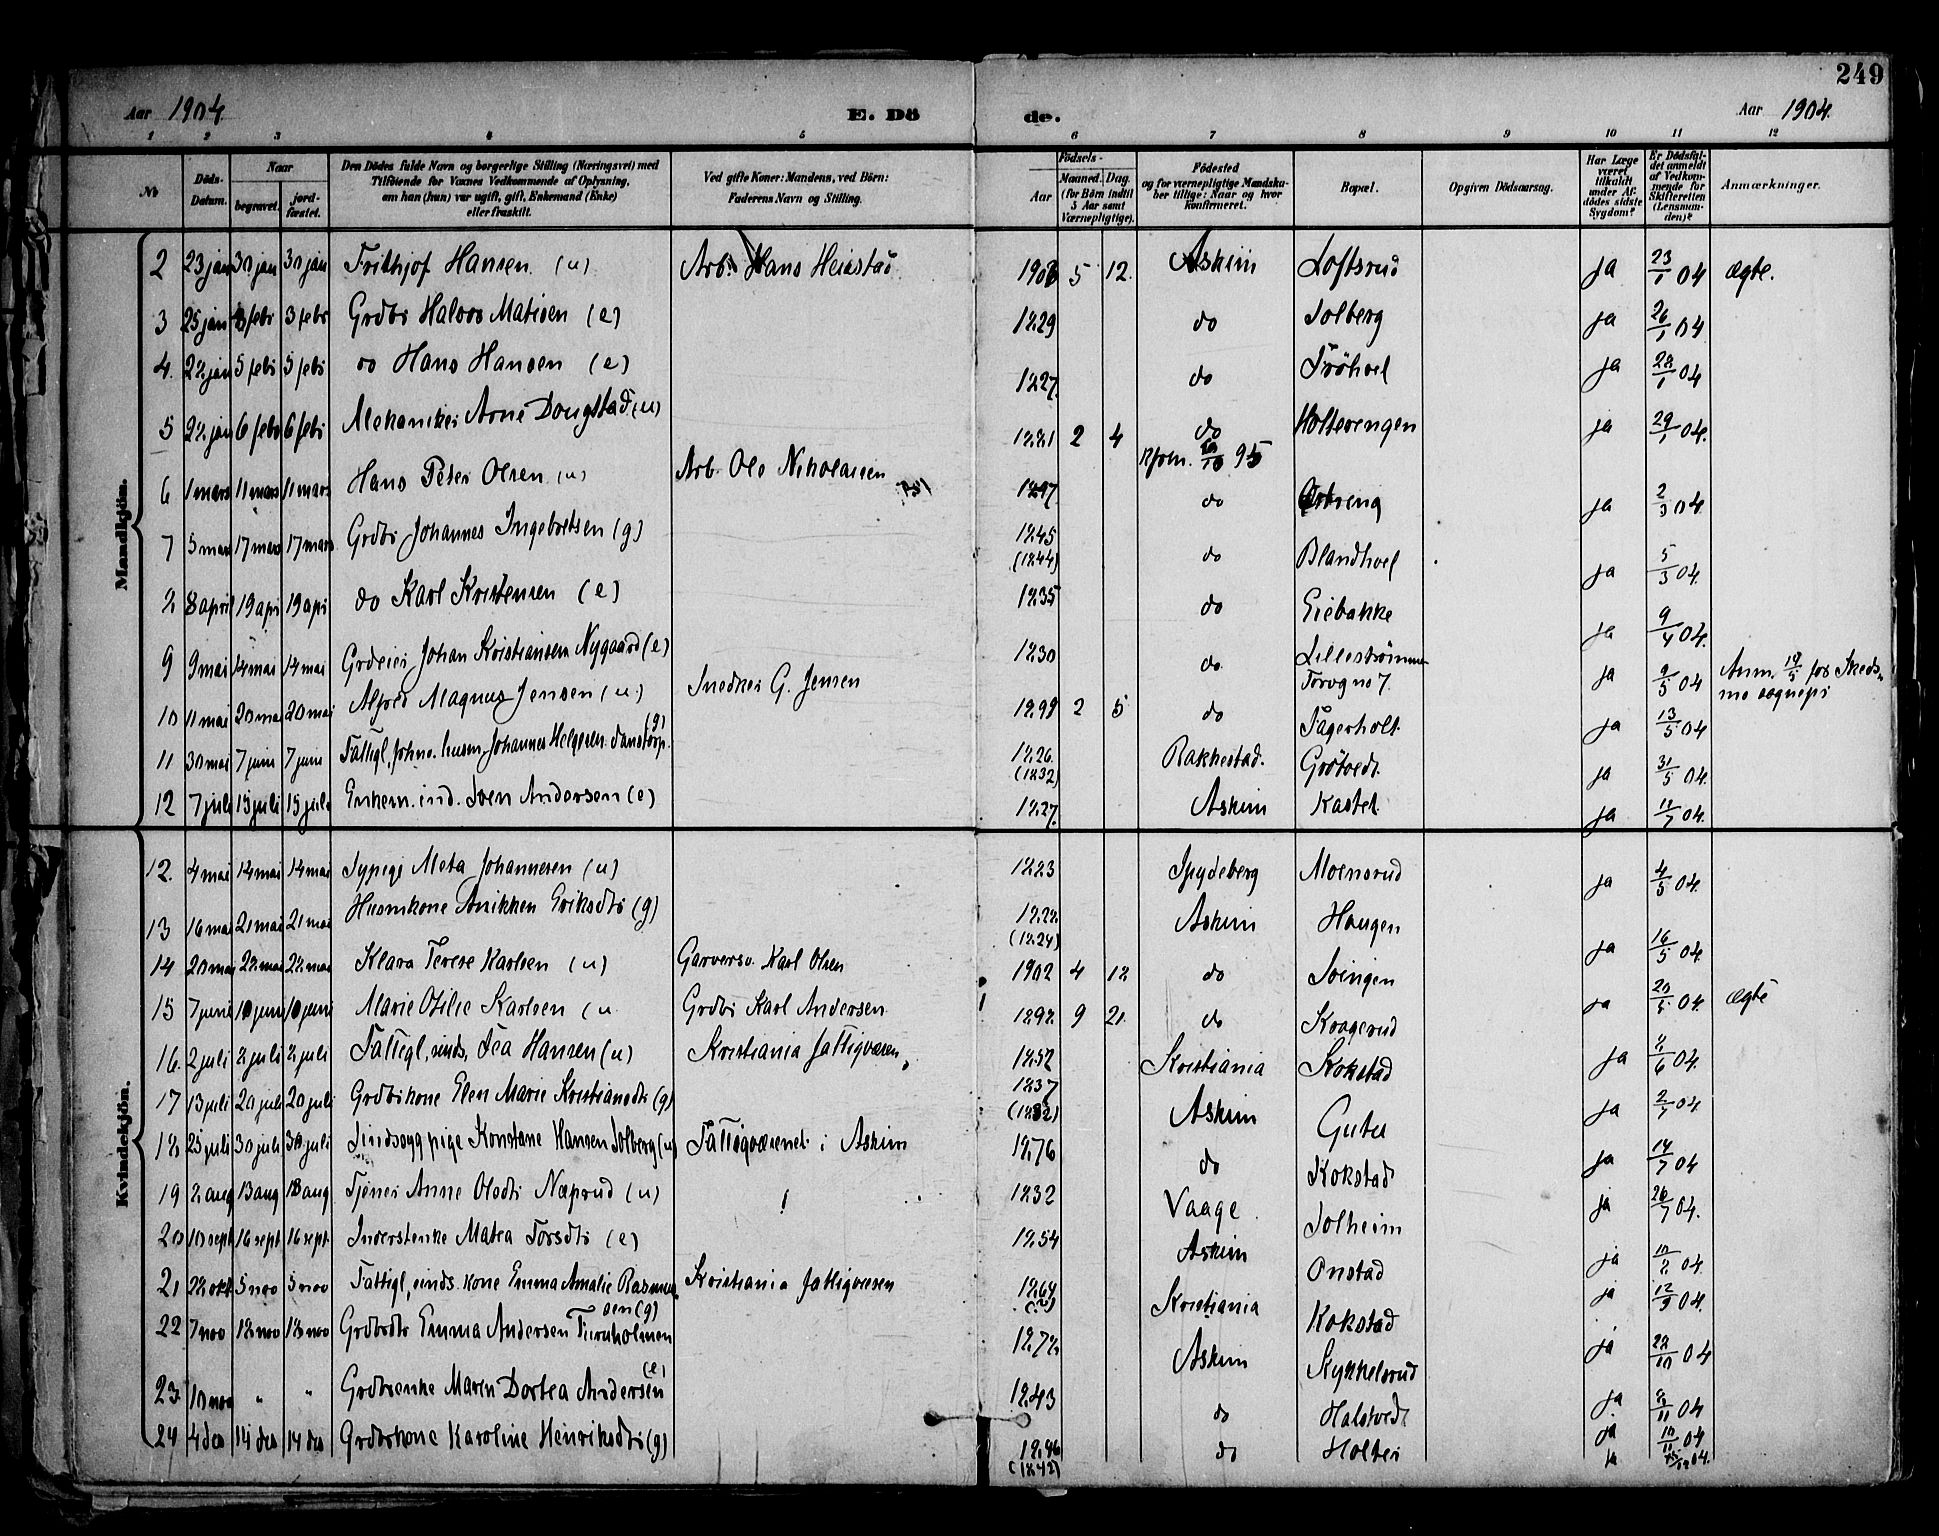 249
Aar 1904. E. Dö de. Aar 1904.
1 2 3 4 5 6 7 8 9 10 11 12
No Döds-Datum. Naar begravet. jord-fæstet. Den Dödes fulde Navn og borgerlige Stilling (Næringsvei) med Tilföiende for Voxnes Vedkommende af Oplysning, om han (hun) var ugift, gift, Enkemand (Enke) eller fraskilt. Ved gifte Koner: Mandens, ved Börn: Faderens Navn og Stilling. Födsels- Aar Maaned. Dag. (for Börn indtil 5 Aar samt Værnepligtige). Födested og for værnepligtige Mandskaber tillige: Naar og hvor Konfirmeret. Bopæl. Opgiven Dödsaarsag. Har Læge været tilkaldt under Afdödes sidste Sygdom? Er Dödsfaldet anmeldt af Vedkommende for Skifteretten (Lensmanden)? Anmærkninger.
Mandkjön.
2 23 jan 30 jan 30 jan Frithjof Hansen (u) Arb. Hans Heiastad 1903 5 12. Askim Loftsrud ja 23/1 04 ægte.
3 25 jan 3 febr 3 febr Grdbr Halvor Matisen (e) 1829 do Solberg ja 26/1 04
4. 28 jan 5 febr 5 febr do Hans Hansen (e) 1827. do Tröhvel ja 28/1 04
5 28 jan 6 febr 6 febr Mekaniker Arne Dougstad (u) 1881 2 4 do Holterengen ja 29/1 04.
kfrm. 95
6 1 mars 11 mars 11 mars Hans Peter Olsen (u) Arb. Ole Nikolaisen 1897 do ja 2/3 04
7 5 mars 17 mars 17 mars Grdbr Johannes Ingebretsen (g) 1845 (1844) do Blandhvel ja 5/3 04.
8 8 april 19 apr 19 apr do Karl Kristensen (e) 1835 do Eiebakke ja 9/4 04.
9 9 mai 14 mai 14 mai Grdeier Johan Kristiansen Nygaard (e) 1830 do. Lillestrømmen Torvg no 7. ja 9/5 04 Anm. for Skedsmo sognepr
10 11 mai 20 mai 20 mai Alfred Magnus Jensen (u.) Snedker G. Jensen 1899 2 5 do Fagerholt. ja 13/5 04
11 30 mai 7 juni 7 juni Fattigl, Johannes Helgesen (g) 1826. (1832) Rakkestad. Grötvedt. ja 31/5 04.
12 7 juli 15 juli 15 juli Enkem. ind. Sven Andersen (e) 1827. Askim Kastet ja 04.
Kvindekjön.
12. 4 mai 14 mai 14 mai Sypige Meta Johannesen (u) 1823 Spydeberg Moensrud ja 4/5 04.
13 16 mai 21 mai 21 mai Husmkone Anikken Eriksdtr (g) 1828. (1824) Askim Haugen ja 16/5 04.
14 20 mai 28 mai 28 mai Klara Terese Karlsen (u) Garversv. Karl Olsen 1902 4 12 do Svingen ja 20/5 04. ægte
15 7 juni 10 juni 10 juni Marie Otilie Karlsen (u Grdbr Karl Andersen 1898. 9 21. do Kragerud ja 8/6 04.
16. 2 juli 2 juli 2 juli Fattigl, sinds. Tea Hansen (u) Kristiania fattigvæsen 1852 Kristiania Kokstad ja 04
17 13 juli 20 juli 20 juli Grdbrkone Elen Marie Kristiansdtr (g) 1837 (1832) Askim Guter ja 14/7 04
18. 25 juli 30 juli 30 juli Sindssyg pige Konstanse Hansen Solberg (u) Fattigvæsenet i Askim 1876 do Kokstad ja 26/7 04.
19 2 aug 13 aug 13 aug Tjener Anne Olsdtr Næprud (u) 1832 Vaage Solheim ja 04.
20 10 sept 16 sept. 16 sept. Inderstenke Matea Torsdtr (e) 1854 Askim Onstad ja 12/9 04.
21 22 okt. 5 nov 5 nov Fattigl, sinds. kone Emma Amalie Rasmussen (g) Kristiania fattigvæsen 1864 Kristiania Kokstad ja 22/10 04
22 7 nov 18 nov 18 nov Grdbrdtr Emma Andersen Furuholmen 1878. Askim Kykkelsrud ja 8/11 04
23. 10 nov " " Grdbrenke Maren Dortea Andersen (e) 1843 do Halstvedt ja 10/11 04
24 4 des 14 des 14 des Grdbrkone Karoline Henriksdtr (g) 1846 (1842) do Holter ja 04.